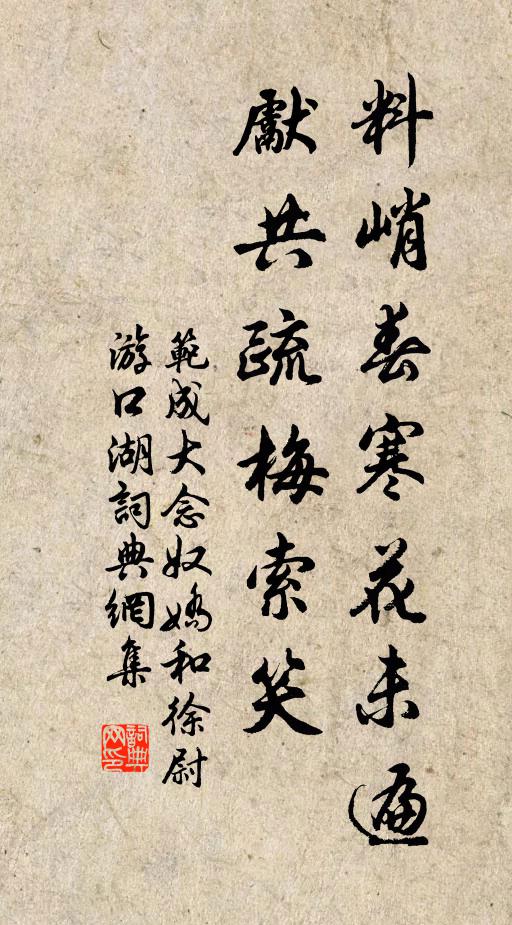 料峭春寒花未遍
獻共疏梅索笑
範成大念奴嬌和徐尉
游口湖詞典網集
詞典网印